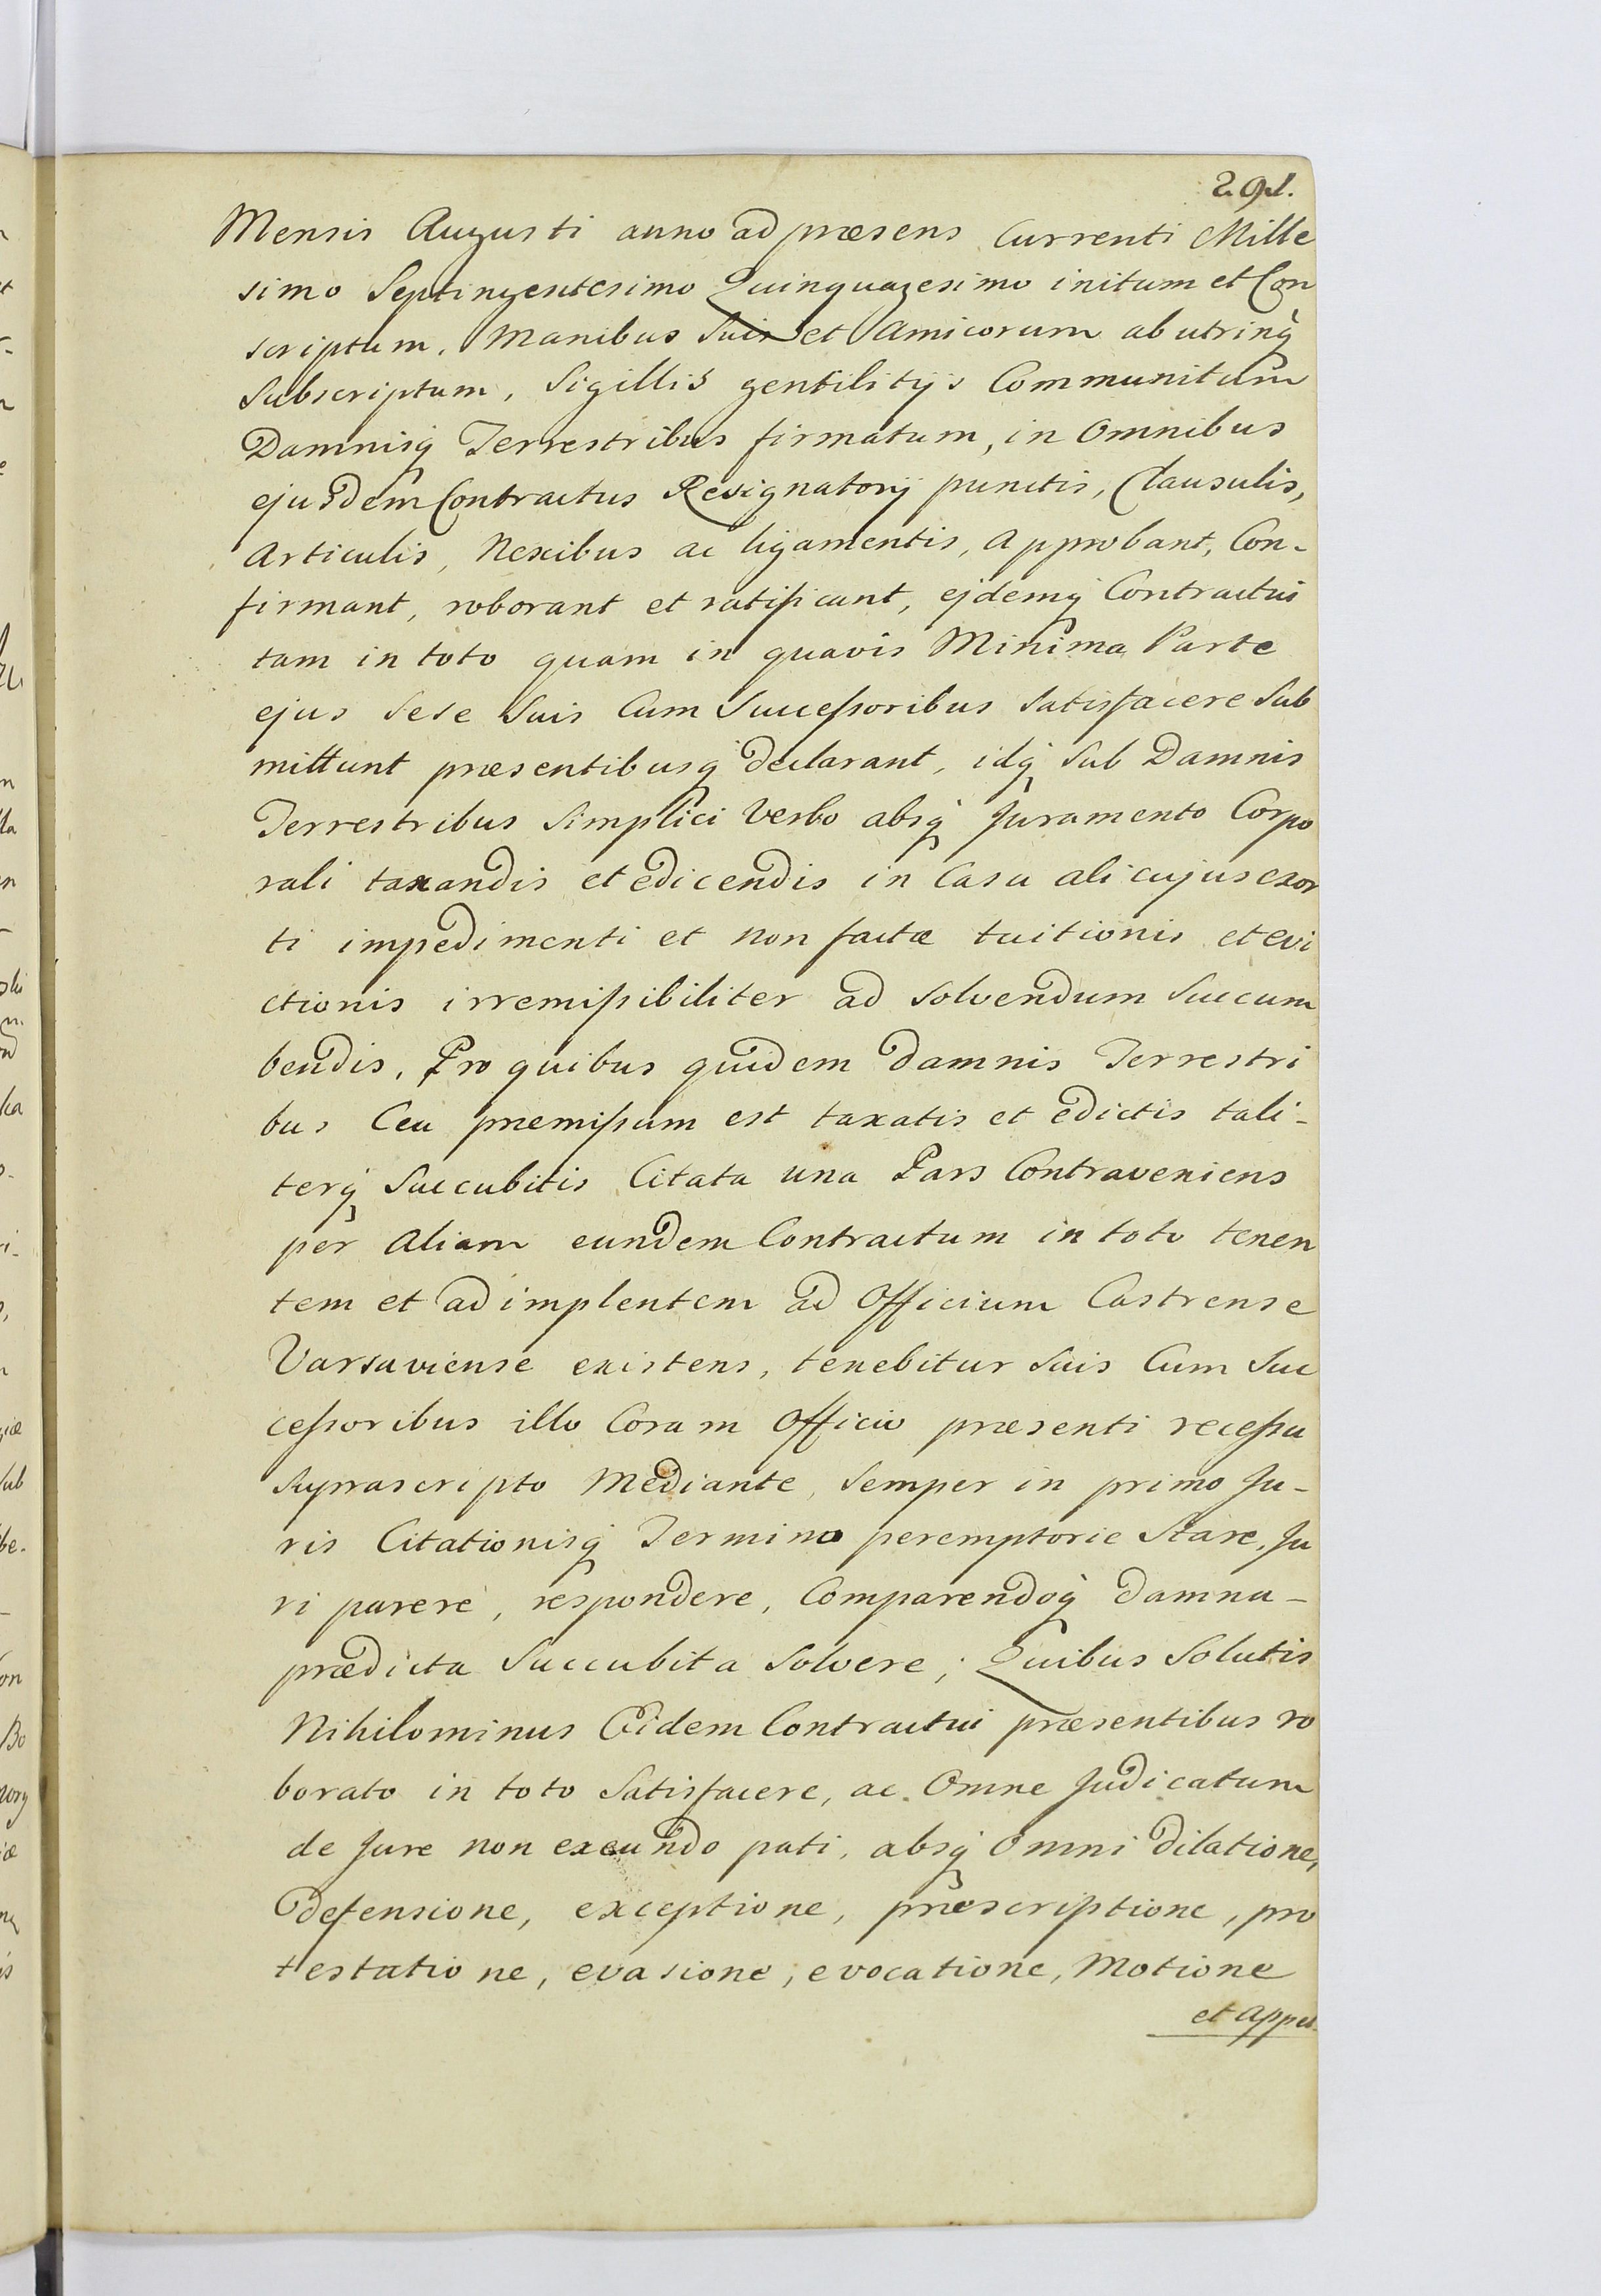 291.
Mensis Augusti anno ad præsens Currenti Mille
simo Septingentesimo Quinquagesimo initum et Con
scriptum, Manibus Suis et Amicorum ab utrinq̃
Subscriptum, Sigillis gentilitijs Communitum
Damnisq̃ Terrestribus firmatum, in Omnibus
ejusdem Contractus Resignatorij punctis, Clausulis,
Articulis, Nexibus ac ligamentis, Approbant, Con-
firmant, roborant et ratificant, ejdemq̃ Contractui
tam in toto quam in quavis Minima Parte
ejus Sese Suis Cum Successoribus Satisfacere Sub
mittunt præsentibusq̃ declarant, idq̃ Sub Damnis
Terrestribus Simplici Verbo absq̃ Juramento Corpo
rali taxandis et edicendis in Casu alicujus exor
ti impedimenti et non factæ tuitionis et evi
ctionis irremissibiliter ad Solvendum Succum
bendis, Pro quibus quidem Damnis Terrestri
bus Ceu præmissum est taxatis et edictis tali-
terq̃ Succubitis Citata una Pars Contraveniens
per Aliam eundem Contractum in toto tenen
tem et adimplentem ad Officium Castrense
Varsaviense existens, tenebitur Suis Cum Suc
cessoribus illo Coram Officio præsenti recessu
Suprascripto Mediante, Semper in primo Ju-
ris Citationisq̃ Termino peremptorie Stare, Ju
ri parere, respondere, Comparendoq̃ damna-
prædicta Succubita Solvere; Quibus Solutis
Nihilominus Eidem Contractui præsentibus ro
borato in toto Satisfacere, ac Omne Judicatum
de Jure non exeundo pati, absq̃ Omni dilatione,
Defensione, exceptione, præscriptione, pro
testatione, evasione, evocatione, Motione
et Appel